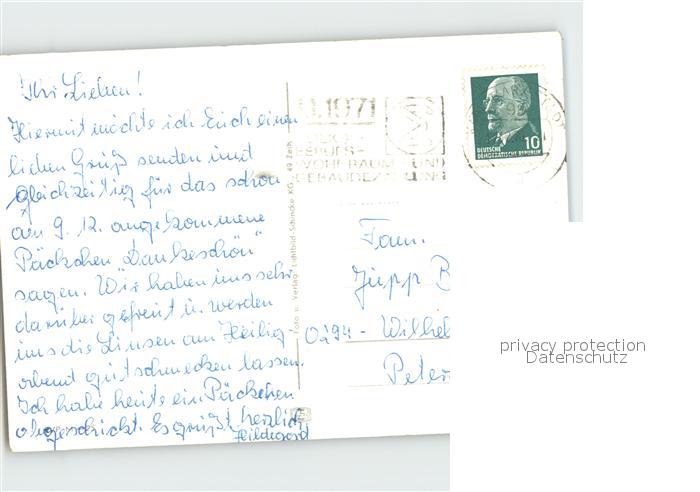 Ihr Lieben!
Hiermit möchte ich Euch einen
lieben Gruß senden und
gleichzeitig für das schon
am 9. 12. angekommene
Päckchen "Dankeschön"
sagen. Wir haben uns sehr
darüber gefreut u. werden
uns die Linsen am Heilig-
abend gut schmecken lassen.
Ich habe heute ein Päckchen
abgeschickt. Es grüßt herzlich
Hildegard
Foto u. Verlag Luftbild-Schincke KG, 49 Zeitz
1.1971
VOLKS-
BERUFS-
WOHNRAUM- UND
GEBÄUDEZÄHLUNG
DEUTSCHE
DEMOKRATISCHE REPUBLIK
10
Fam.
Jupp B
Wilhel
Peter
privacy protection
Datenschutz